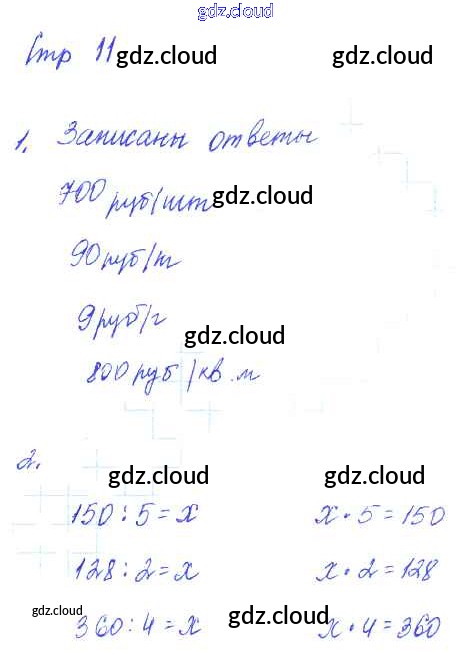 gdz.cloud
Стр 11 gdz.cloud gdz.cloud
1. Записаны ответы
700 руб/шт gdz.cloud
90 руб/т
9 руб/г
gdz.cloud
800 руб/кв.м
2.
gdz.cloud gdz.cloud
150:5=x x·5=150
128:2=x x·2=128
gdz.cloud gdz.cloud
360:4=x x·4=360